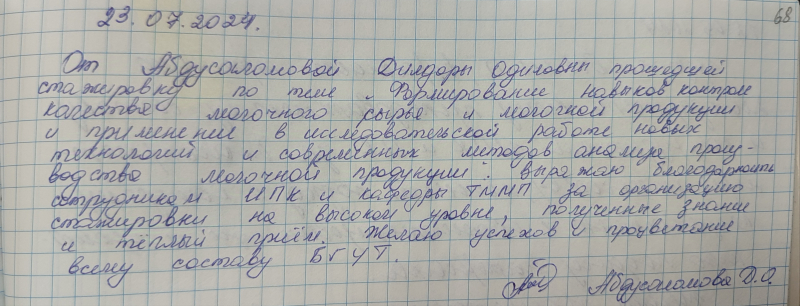 68
23.07.2024.
От Абдусаломовой Дилдоры Одиловны прошедшей
стажировку по теме „Формирование навыков контроля
качества молочного сырья и молочной продукции
и применение в исследовательской работе новых
технологий и современных методов анализа произ-
водства молочной продукции". выражаю благодарность
сотрудникам ИПК и кафедры ТММП за организацию
стажировки на высоком уровне, полученные знания
и тёплый приём. Желаю успехов и процветания
всему составу БГУТ.
Абдусаломова Д.О.